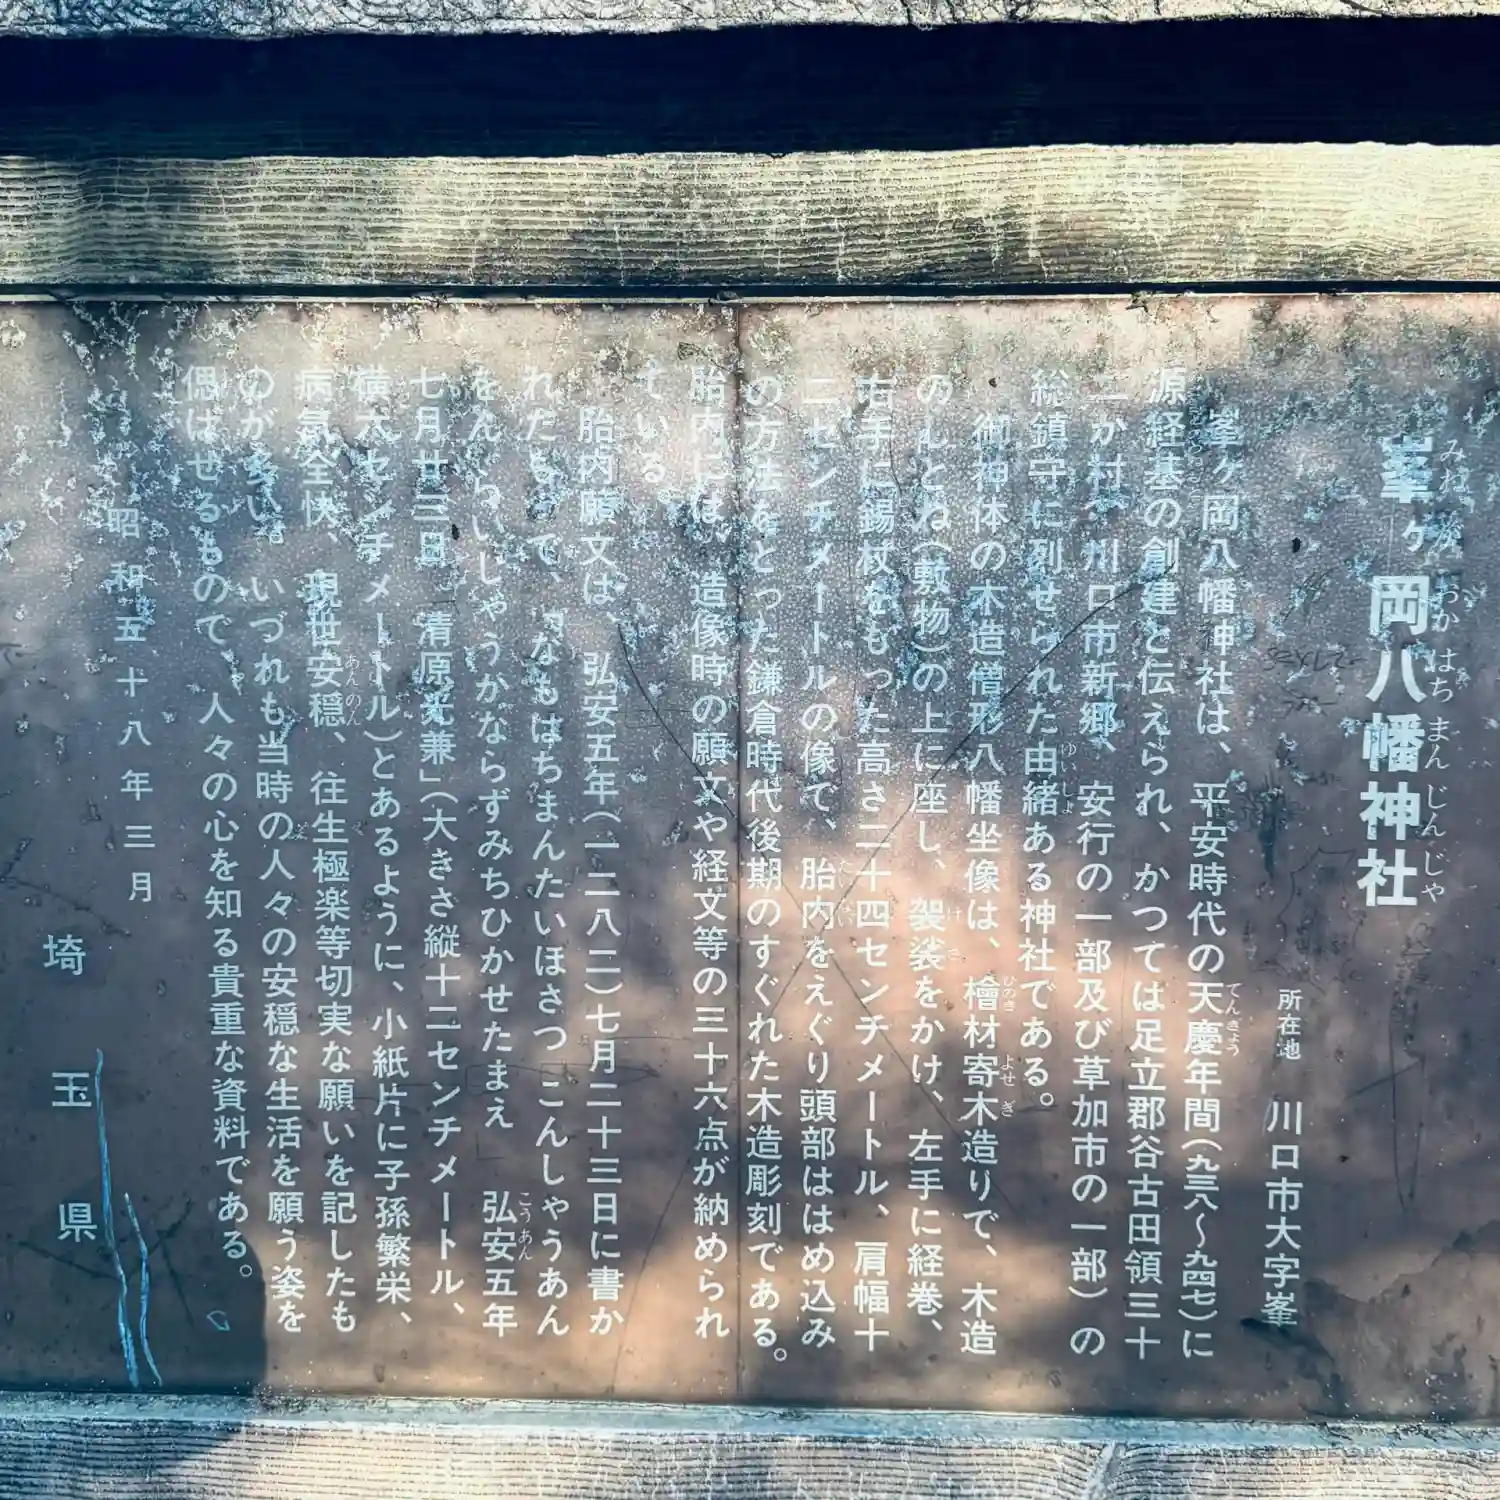 峯ヶ岡八幡神社
みね が おか はち まん じん じゃ
所在地 川口市大字峯
峯ヶ岡八幡神社は、平安時代の天慶年間(九三八〜九四七)に
てんきょう
源経基の創建と伝えられ、かつては足立郡谷古田領三十
二か村(川口市新郷、安行の一部及び草加市の一部)の
総鎮守に列せられた由緒ある神社である。
ゆいしょ
御神体の木造僧形八幡坐像は、檜材寄木造りで、木造
ひのき よせ ぎ
のしとね(敷物)の上に座し、袈裟をかけ、左手に経巻、
け さ
右手に錫杖をもった高さ二十四センチメートル、肩幅十
二センチメートルの像で、胎内をえぐり頭部ははめ込み
たいない
の方法をとった鎌倉時代後期のすぐれた木造彫刻である。
胎内には、造像時の願文や経文等の三十六点が納められ
ている。
胎内願文は、弘安五年(一二八二)七月二十三日に書か
れたもので、「なもはちまんたいほさつ こんしゃうあん
をんらいしゃうかならずみちひかせたまえ 弘安五年
こうあん
七月廿三日 清原光兼」(大きさ縦十二センチメートル、
横六センチメートル)とあるように、小紙片に子孫繁栄、
病気全快、現世安穏、往生極楽等切実な願いを記したも
あんのん
のが多い。いづれも当時の人々の安穏な生活を願う姿を
偲ばせるもので、人々の心を知る貴重な資料である。
昭和五十八年三月
埼玉県